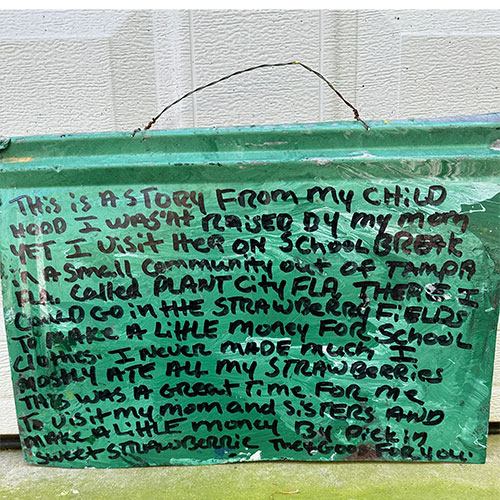 THIS IS A STORY FROM MY CHILD
HOOD I WASN'T RAISED BY MY MOM
YET I VISIT HER ON SCHOOL BREAK
IN A SMALL COMMUNITY OUT OF TAMPA
FLA. CALLED PLANT CITY FLA, THERE I
COULD GO IN THE STRAWBERRY FIELDS
TO MAKE A LITTLE MONEY FOR SCHOOL
CLOTHES. I NEVER MADE MUCH I
MOSTLY ATE ALL MY STRAWBERRIES
THIS WAS A GREAT TIME FOR ME
TO VISIT MY MOM AND SISTERS AND
MAKE A LITTLE MONEY BY PICKIN
SWEET STRAWBERRIE THEY GOOD FOR YOU.